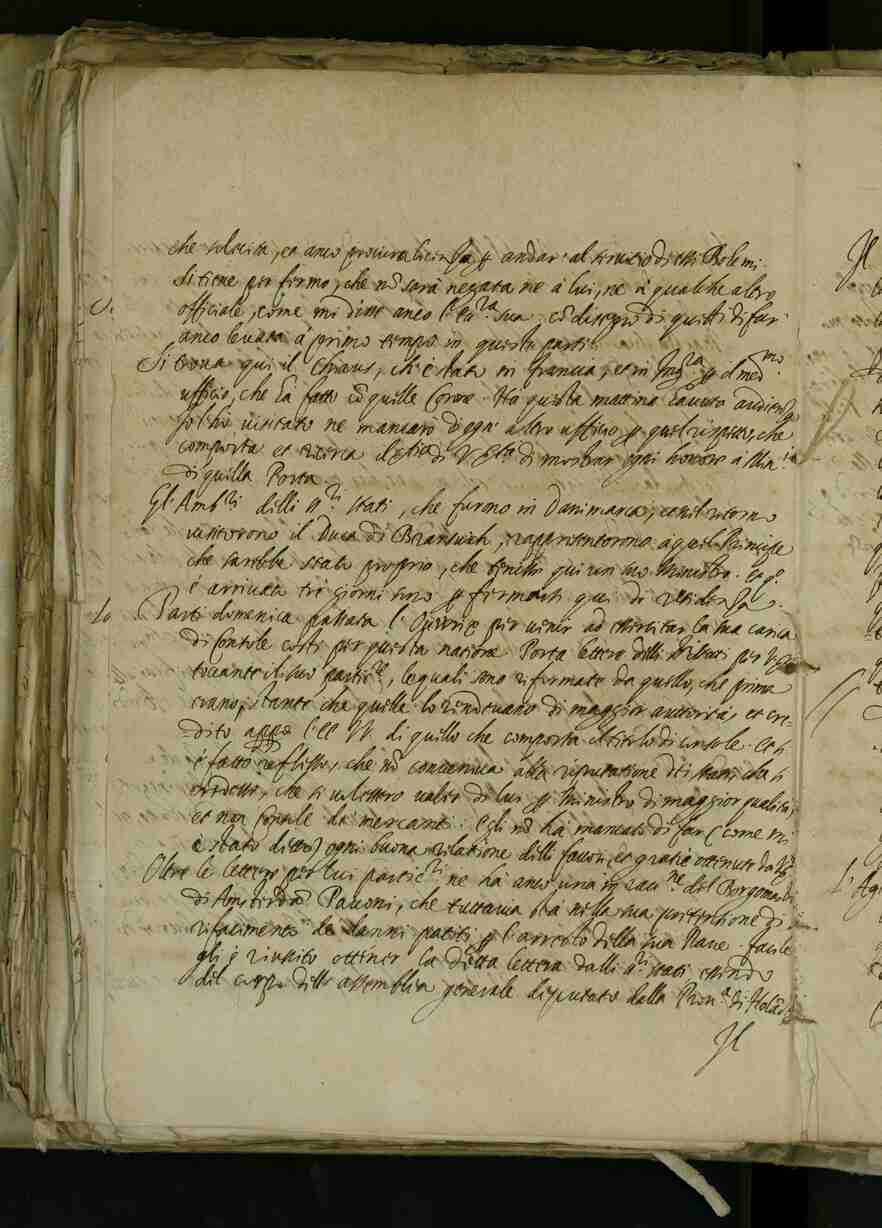 che solecita, et anco procura licenza ꝑ andar' al seruitio di essi Bolemi.
Si tiene per fermo, che nõ sarà negata ne à lui, ne à qualche altro
officiale, come mi disse anco l'Ecc.za sua cõ disegno di questi di far'
anco leuata à primo tempo in queste parti.
Si troua qui il Chiaus, ch'è stato in Francia, et in Ing.ra ꝑ il med.mo
ufficio, che hà fatto cõ quelle Corone. Hà questa mattina hauuto audienza
hò uisitato ne mancarò d'ogn' altro uffitio ꝑ quel rispetto, che
comporta et ricerca il di V. S.tà di mostrar ogni honore à Mini
di quella Porta.
Gl'Amb.ri delli ss.ri Stati, che furono in Danimarca, nel ritorno
uisitorono il Duca di Bransuich, rappresentorono à quel Principe
che sarebbe stato proprio, che tenesse qui un suo Ministro. et q.o
è arriuato trè giorni sono ꝑ fermarsi qui di residenza.
Partì domenica passata l' per uenir ad essercitar la sua carica
di Console costì per questa natione. Porta lettere delli ss.ri Stati per V. S.tà
toccante il suo partic.re, lequali sono riformate da quello, che prima
erano, stante che quelle lo rendeuano di maggior auttorità, et cre-
dito appo l'EE. VV. di quello che comporta il titolo di console. et s'
è fatto reflesso, che nõ conueniua alla riputatione dei stati, che si
credesse, che si uolessero ualer di lui ꝑ Ministro di maggior qualità,
et non Console de mercanti. Egli nõ hà mancato di far (come mi
è stato detto) ogni buona relatione delli fauori, et gratie ottenute da V. S.tà
Oltre le lettere per lui partic.ri ne hà anco una in racc.ne del Borgomastro
di Amsterdã Pauoni, che tuttauia stà nella sua pretensione di
rifacimento de danni patiti ꝑ l'arresto della sua Naue. facile
gli è riuscito ottener la detta lettera dalli ss.ri stati essendo
del corpo dell' assemblea generale deputato dalla Prou.a di Holãda
Il